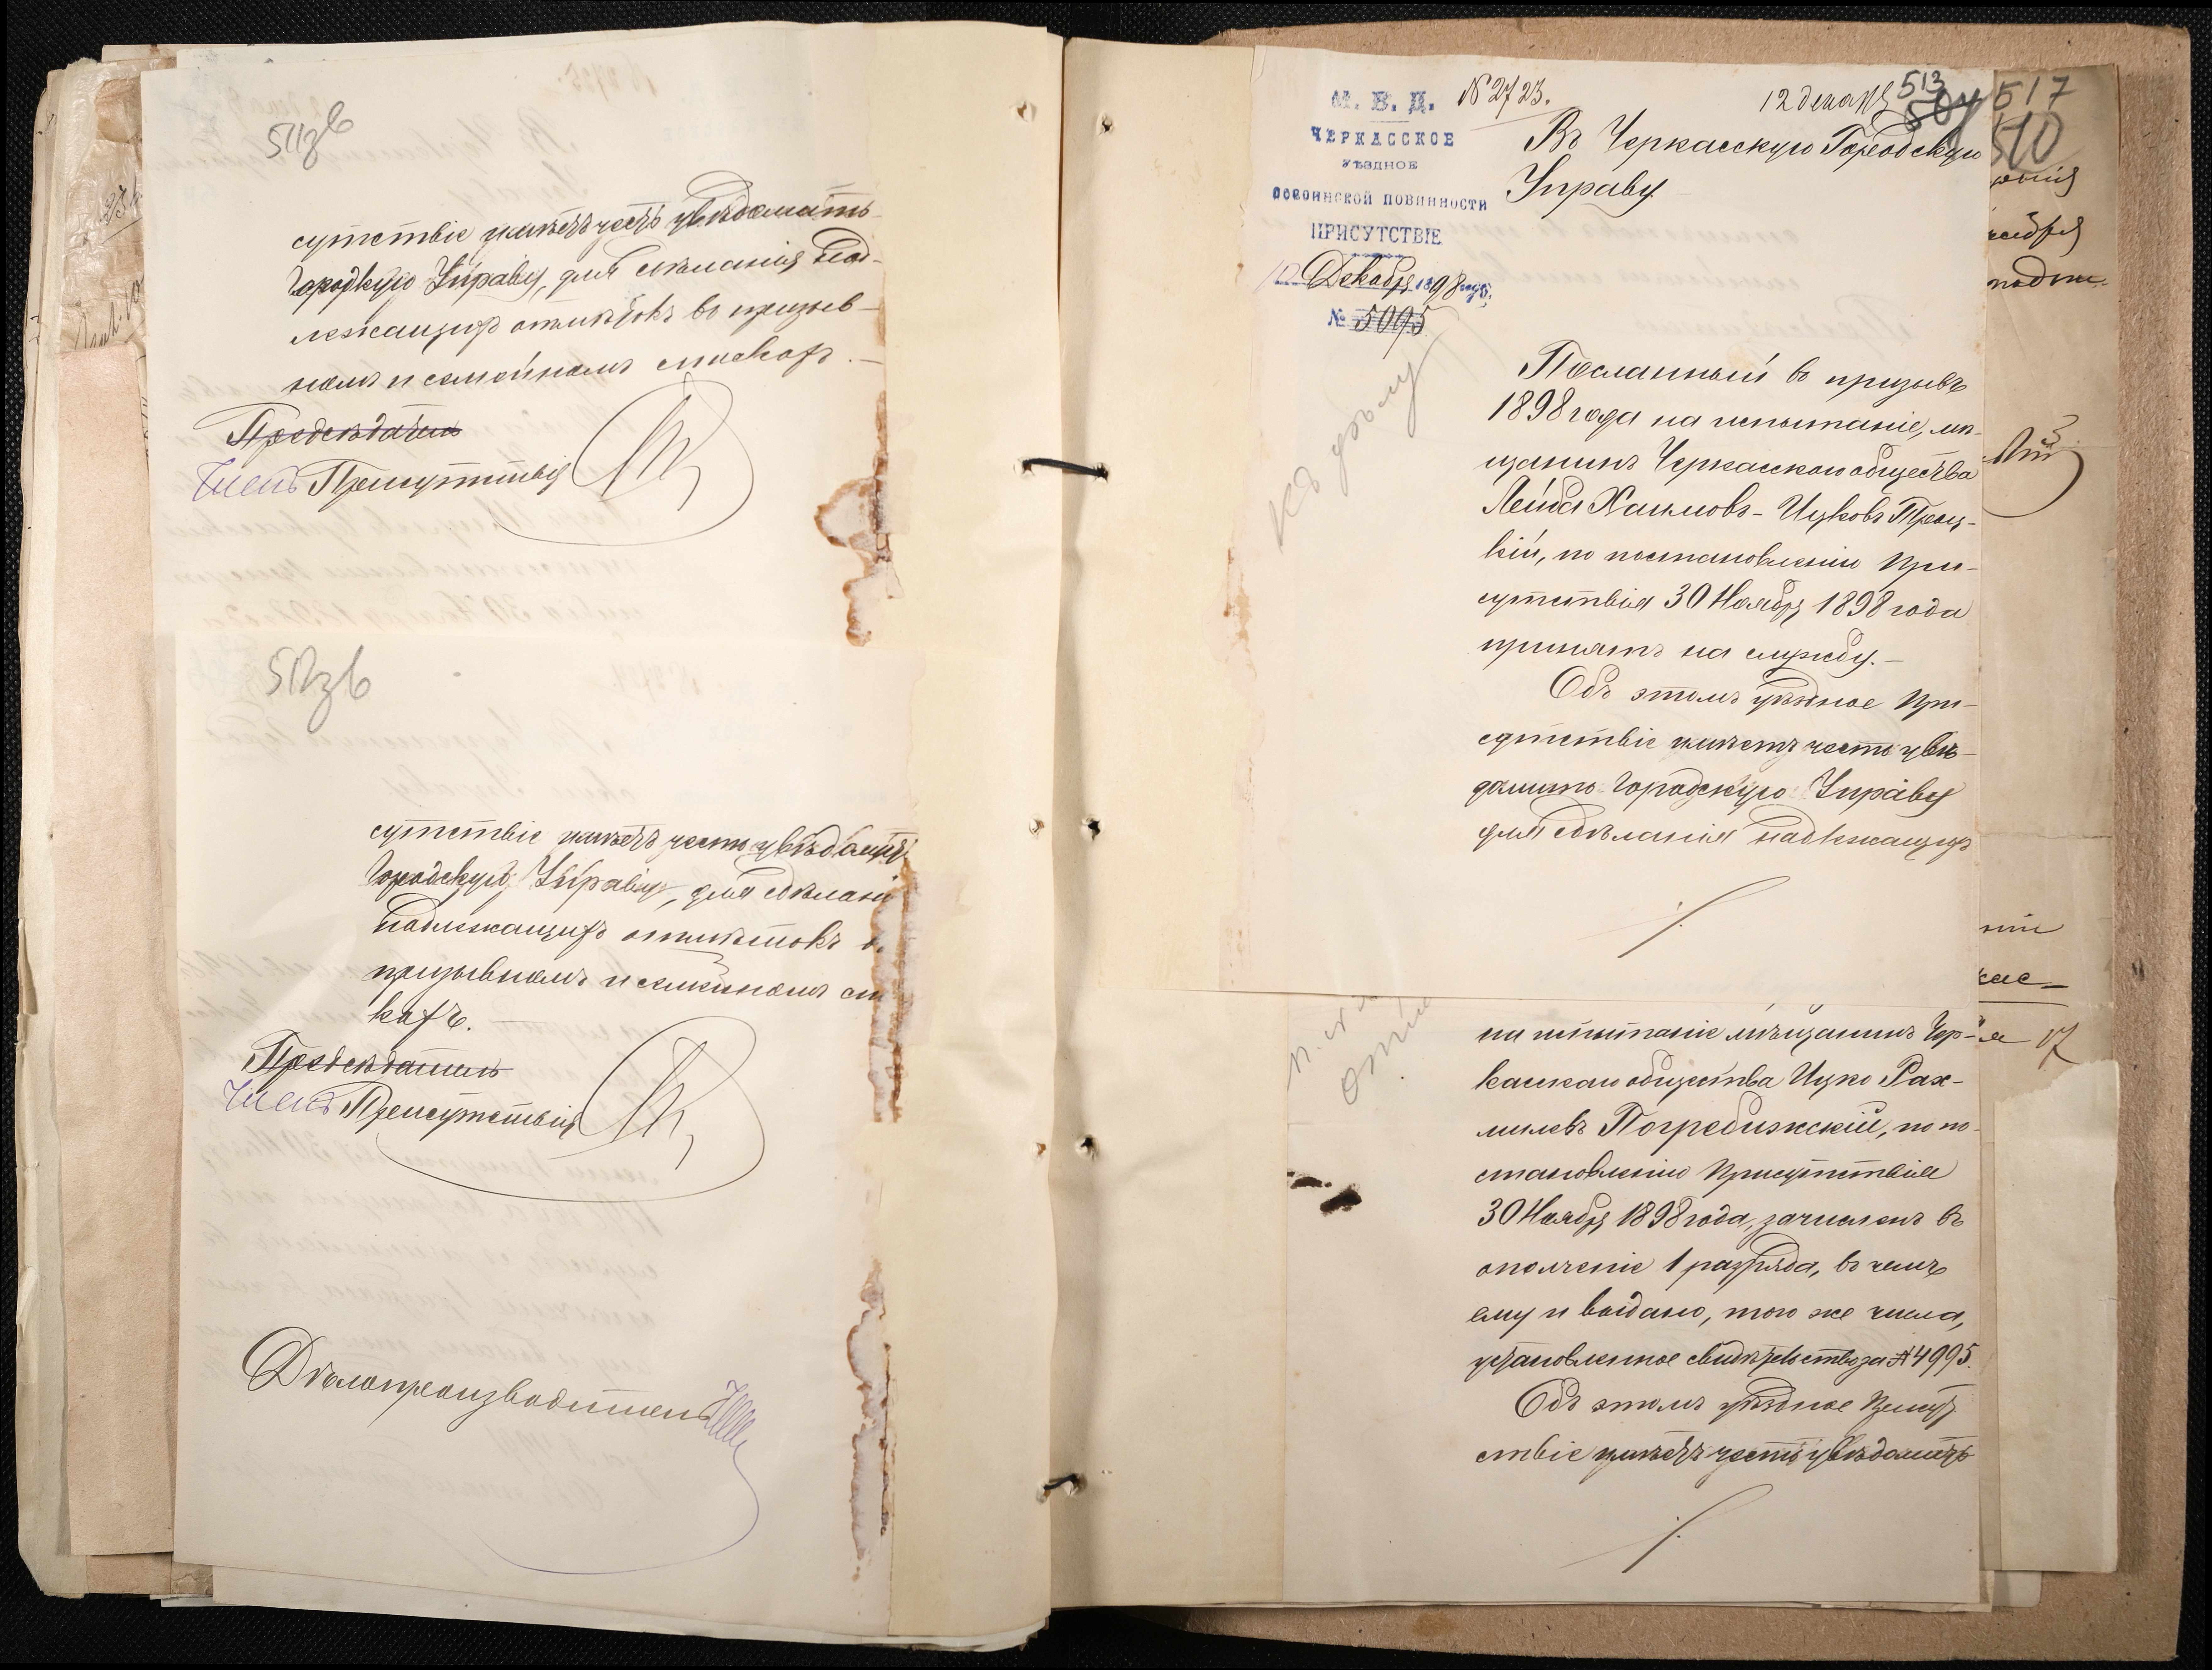 511зв
сутствіе имѣетъ честь увѣдомить
Городскую Управу, для сдѣланія над-
лежащихъ отмѣтокъ въ призыв-
номъ и семейномъ спискахъ.—
Предсѣдатель
Членъ Присутствія
512зв
сутствіе имѣетъ честь увѣдомить
Городскую Управу, для сдѣланія
надлежащихъ отмѣтокъ въ
призывномъ и семейномъ спи
кахъ.—
Предсѣдатель
Членъ Присутствія
Дѣлопроизводитель
М. В. Д.
ЧЕРКАССКОЕ
УѢЗДНОЕ
ПО ВОИНСКОЙ ПОВИННОСТИ
ПРИСУТСТВІЕ
12 Декабря 1898 года.
№ 5095
№ 2723.
12 декаб
513
504
Въ Черкасскую Городскую
Управу.
Къ дѣлу
Посланный въ призывъ
1898 года на испытаніе, мѣ-
щанинъ Черкасскаго общества
Лейба Хаимовъ-Ицковъ Троц-
кій, по постановленію При-
сутствія 30 Ноября 1898 года
принятъ на службу.—
Объ этомъ уѣздное При-
сутствіе имѣетъ честь увѣ-
домить Городскую Управу
для сдѣланія надлежащихъ
на испытаніе мѣщанинъ Чер-
касскаго общества Ицко Рах-
милевъ Погребижскій, по по-
становленію Присутствія
30 Ноября 1898 года, зачисленъ въ
ополченіе 1 разряда, въ чемъ
ему и выдано, того же числа,
установленное свидѣтельство за № 4995.
Объ этомъ уѣздное Присут
ствіе имѣетъ честь увѣдомить
517
510